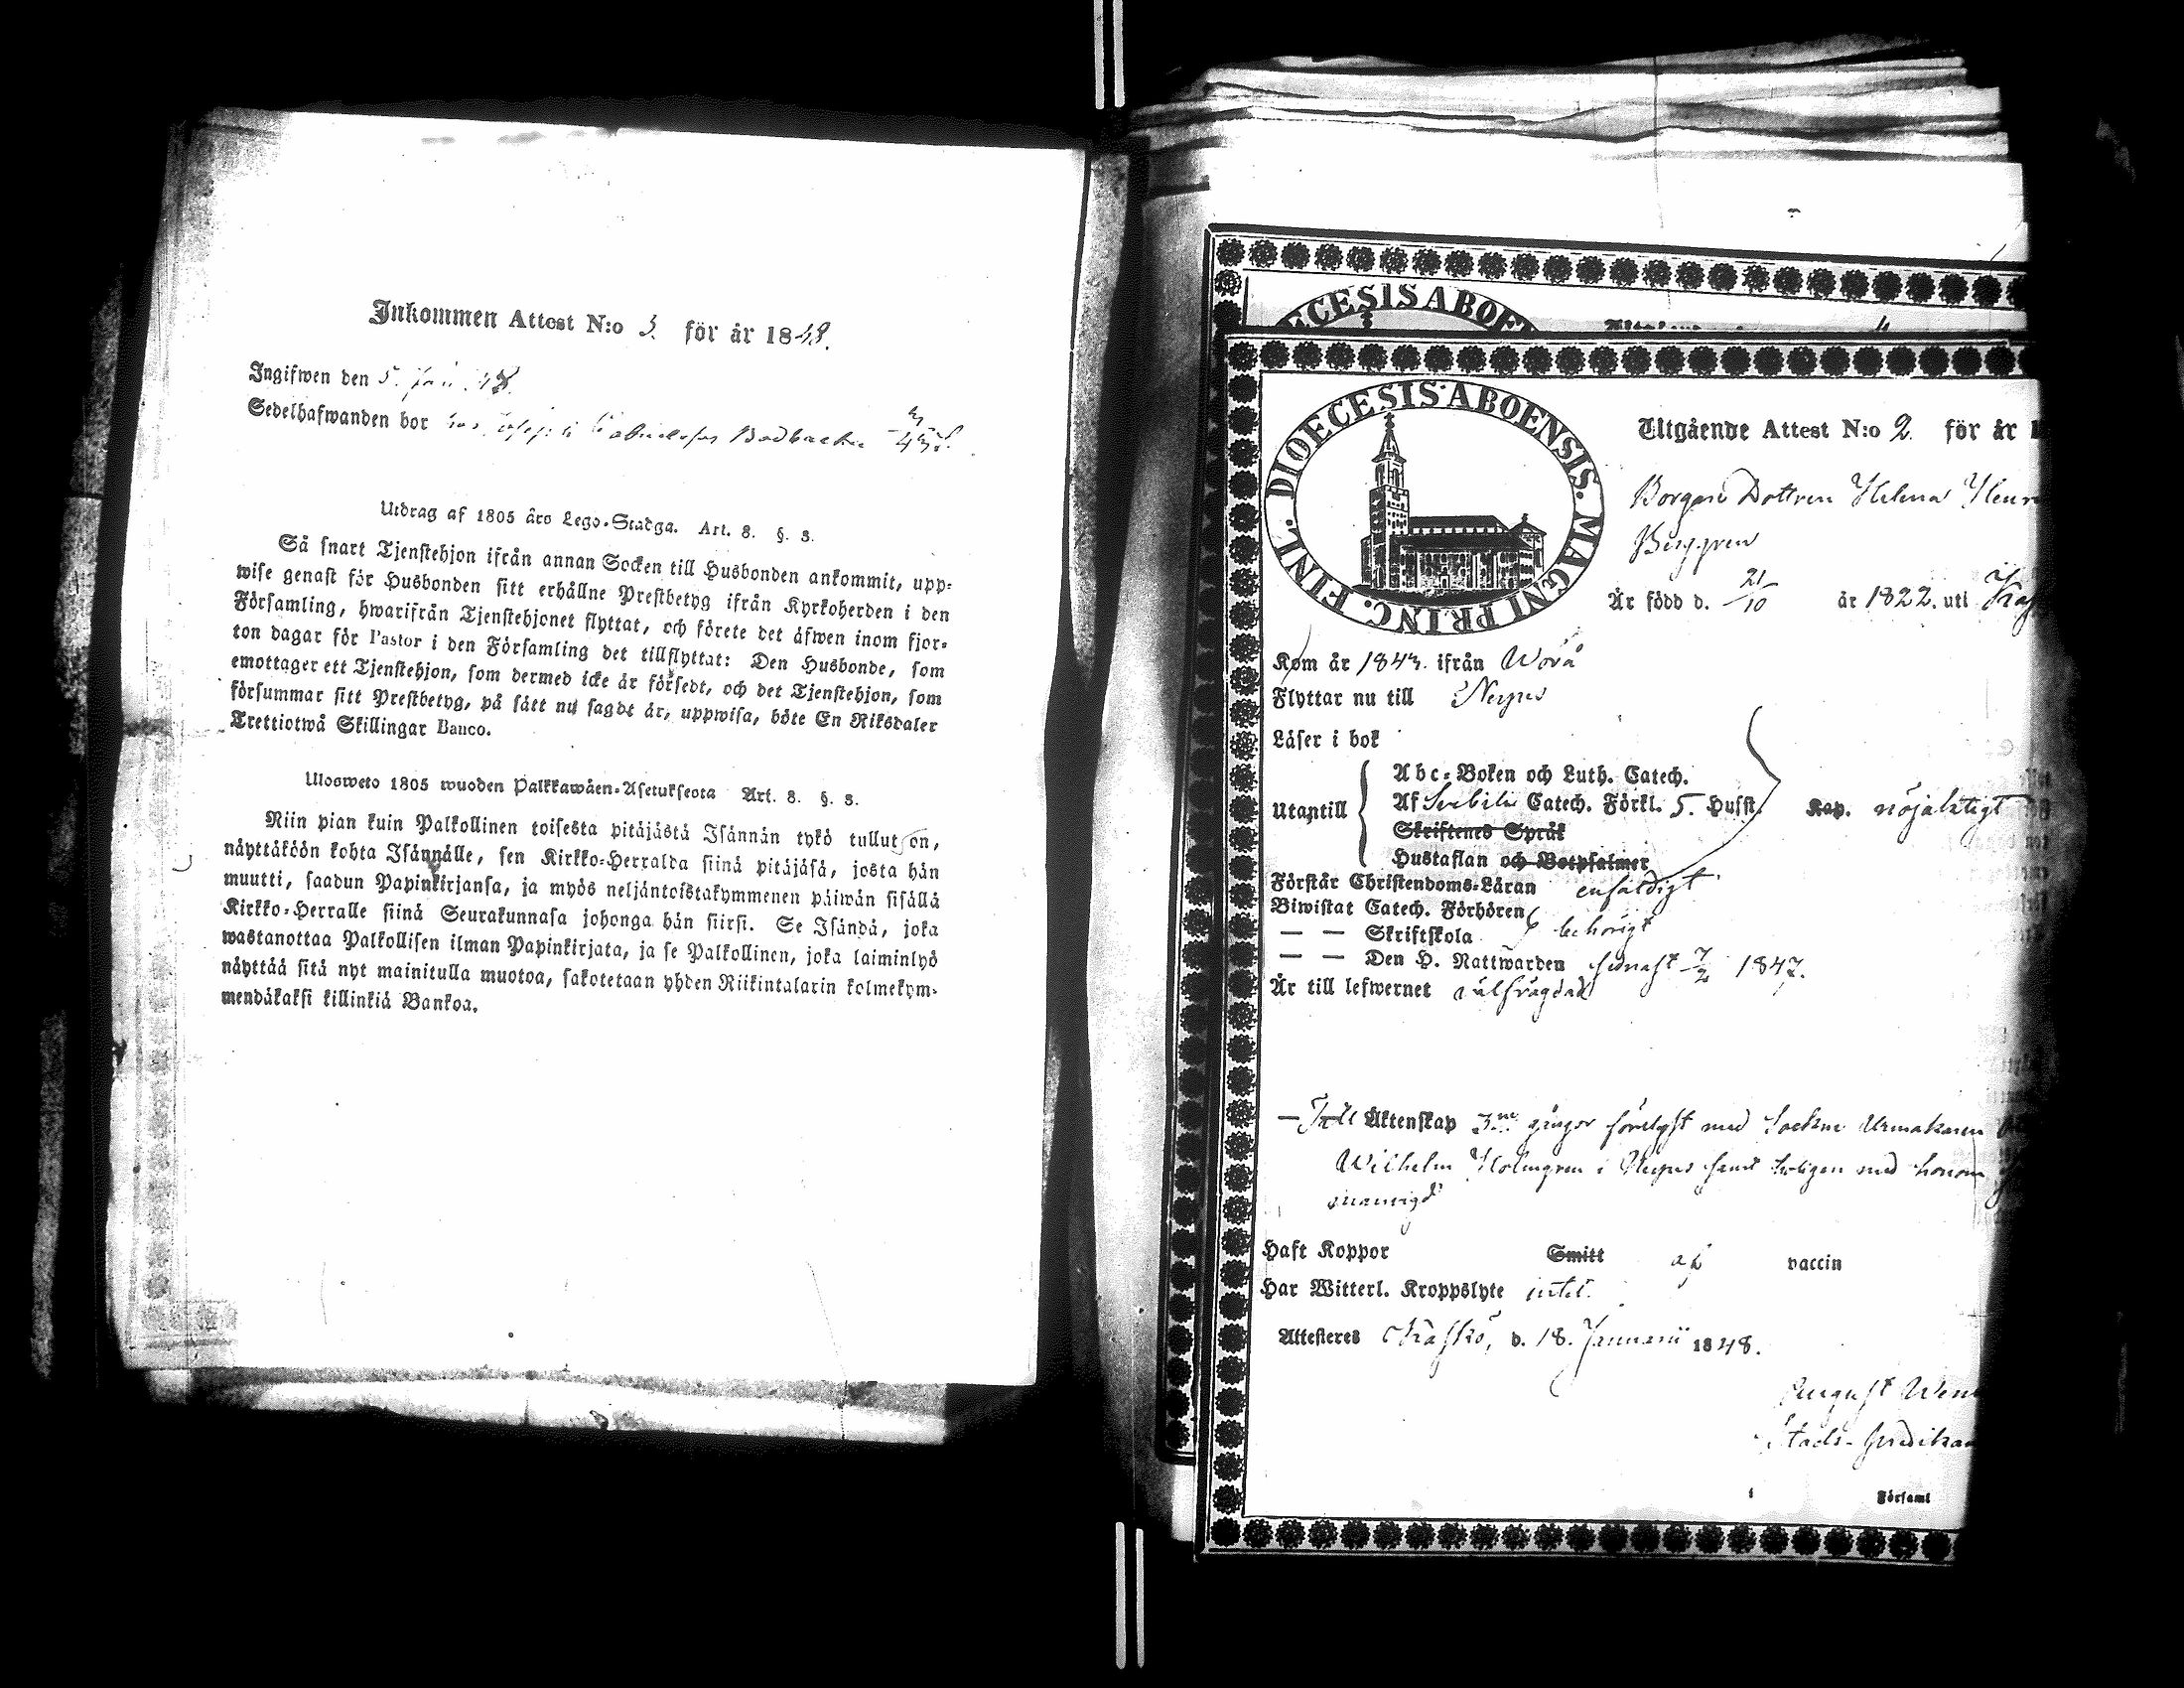 Inkommen Attest N:o 3. för år 1848.
Ingifwen den 5. Jan. 48.
Sedelhafwanden bor hos
Utdrag af 1805 års Lego-Stadga. Art. 8. §. 3.
Så snart Tjenstehjon ifrån annan Socken till Husbonden ankommit, upp-
wise genast för Husbonden sitt erhållne Prestbetyg ifrån Kyrkoherden i den
Församling, hwarifrån Tjenstehjonet flyttat, och förete det äfwen inom fjor-
ton dagar för Pastor i den Församling det tillflyttat: Den Husbonde, som
emottager ett Tjenstehjon, som dermed icke är försedt, och det Tjenstehjon, som
försummar sitt Prestbetyg, på sätt nu sagdt är, uppwisa, böte En Riksdaler
Trettiotwå Skillingar Banco.
Ulosweto 1805 wuoden Palkkawäen-Asetuksesta Art. 8. §. 3.
Niin pian kuin Palkollinen toisesta pitäjästä Isännän tykö tullut on,
näyttäköön kohta Isännälle, sen Kirkko-Herralda siinä pitäjäsä, josta hän
muutti, saadun Papinkirjansa, ja myös neljäntoistakymmenen päiwän sisällä
Kirkko-Herralle siinä Seurakunnasa johonga hän siirsi. Se Isändä, joka
wastanottaa Palkollisen ilman Papinkirjata, ja se Palkollinen, joka laiminlyö
näyttää sitä nyt mainitulla muotoa, sakotetaan yhden Riikintalarin kolmekym-
mendäkaksi killinkiä Bankoa.
ECESIS ABOE
DIOECESIS ABOENSIS. MAGNI PRINC. FINL.
Utgående Attest N:o 2. för år 1
Borgare Dottren Helena Henr
Berggren
Är född d. 21/10 år 1822. uti Kas
Kom år 1843. ifrån Wörå
Flyttar nu till Nerpes
Läser i bok
Utantill
Abc-Boken och Luth. Catech.
Af Svebilii Catech. Förkl. 5. Hufst. Kap. nöjaktigt
Skriftenes Språk
Hustaflan och Botpsalmer
Förstår Christendoms-Läran enfaldigt
Biwistat Catech. Förhören
— — Skriftskola behörigt
— — Den H. Nattwarden senast 7/2 1847.
Är till lefwernet välfrägdad
— Till Äktenskap 3ne gånger förelyst med Sockne Urmakaren
Wilhelm Holmgren i Nerpes samt ledigen med honom
sammanvigd
Haft Koppor Smitt af vaccin
Har Witterl. Kroppslyte intet.
Attesteras Kaskö, d. 18. Januarii 1848.
August Wen
Stads-Predikan
Församl